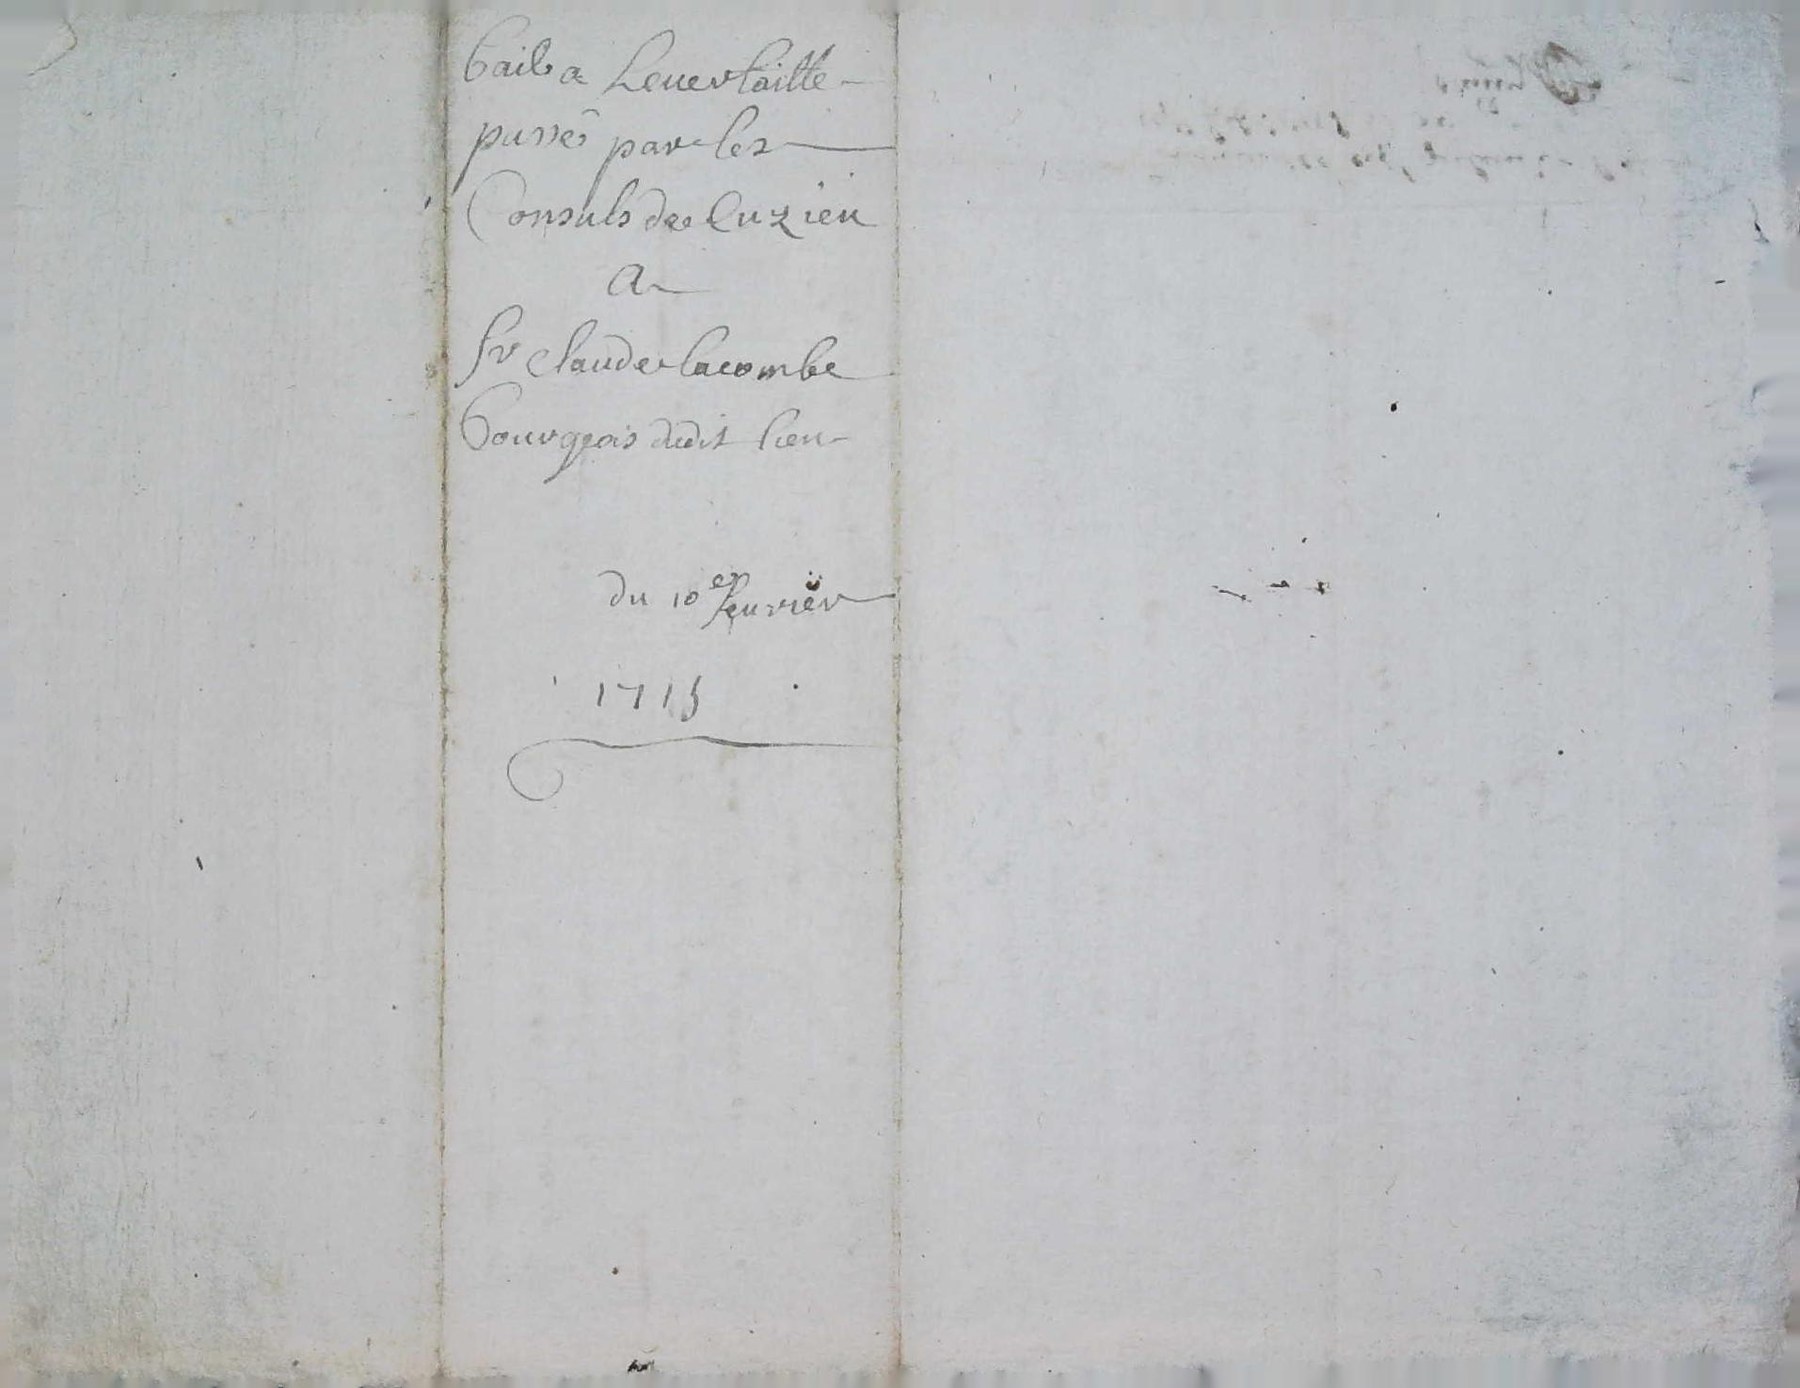 bail a Leuer taille
passé par les
Consuls de Cuzieu
A
sr claude lacombe
bourgeois dudit lieu
du 10e feurier
1715